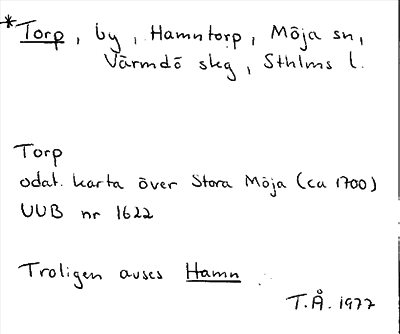 *Torp, by, Hamntorp, Möja sn,
Värmdö skg, Sthlms l.
Torp
odat. karta över Stora Möja (ca 1700)
UUB nr 1622
Troligen avses Hamn.
T.Å. 1977